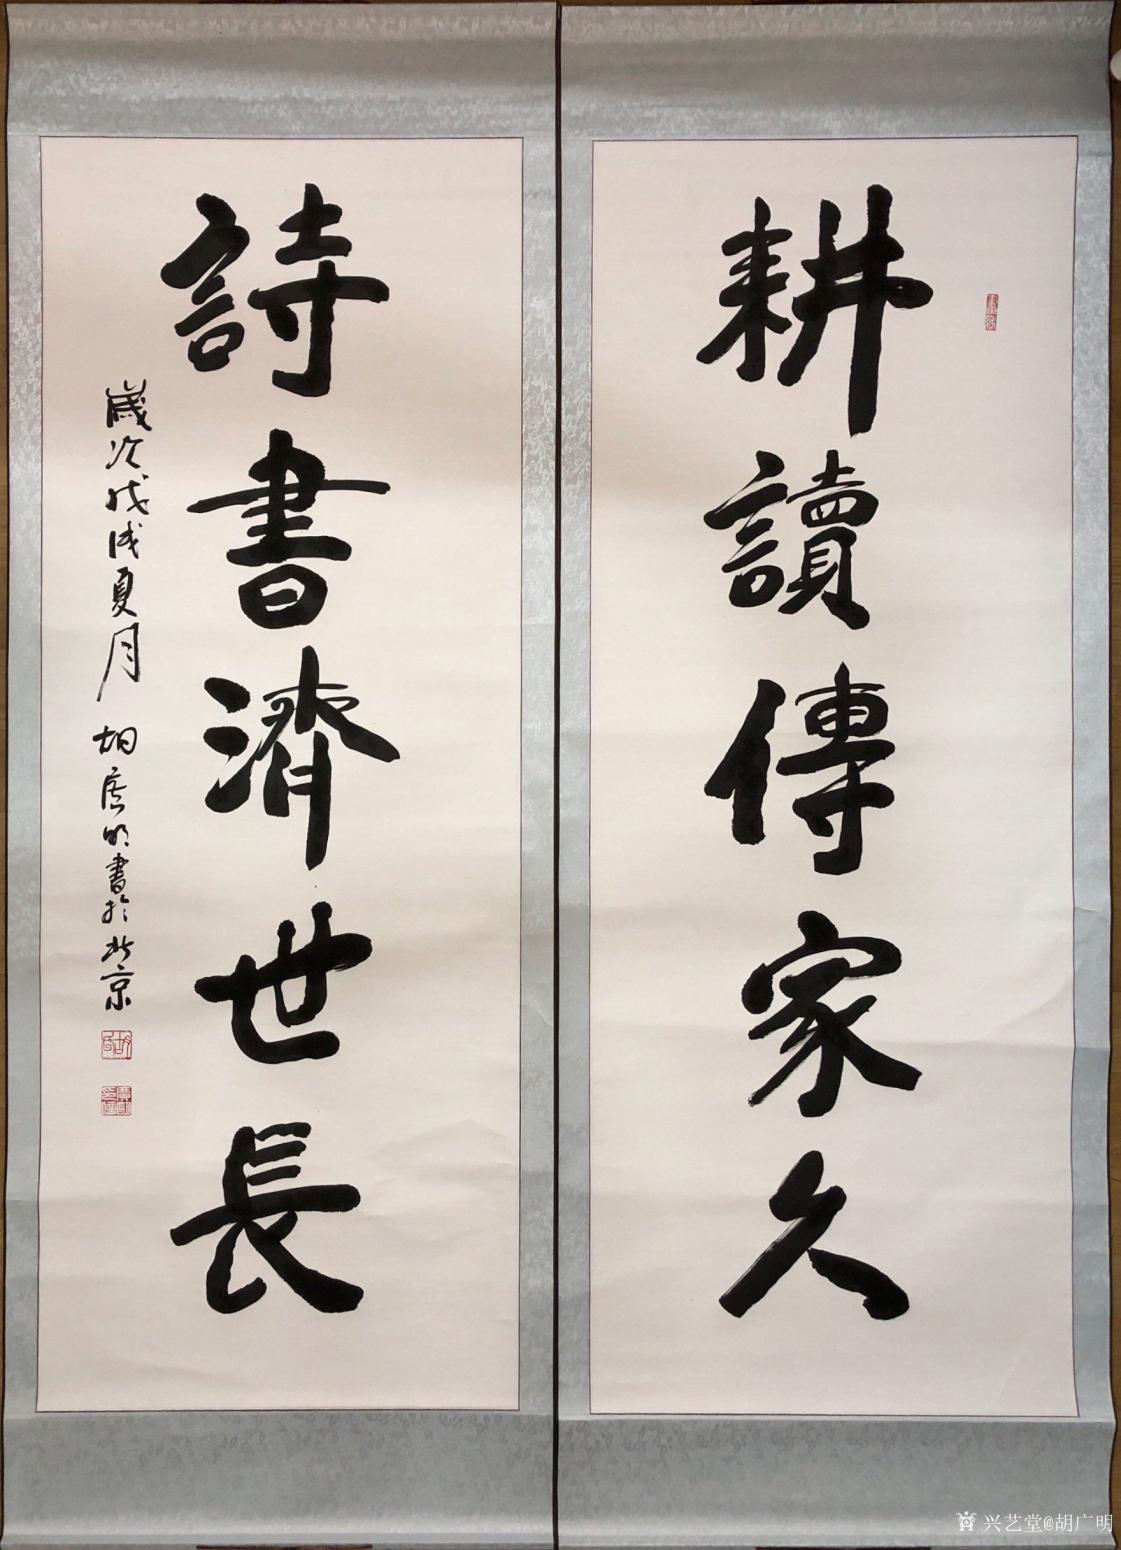 耕讀傳家久
詩書濟世長
歲次戊戌夏月 胡廣明書於北京
兴艺堂@胡广明